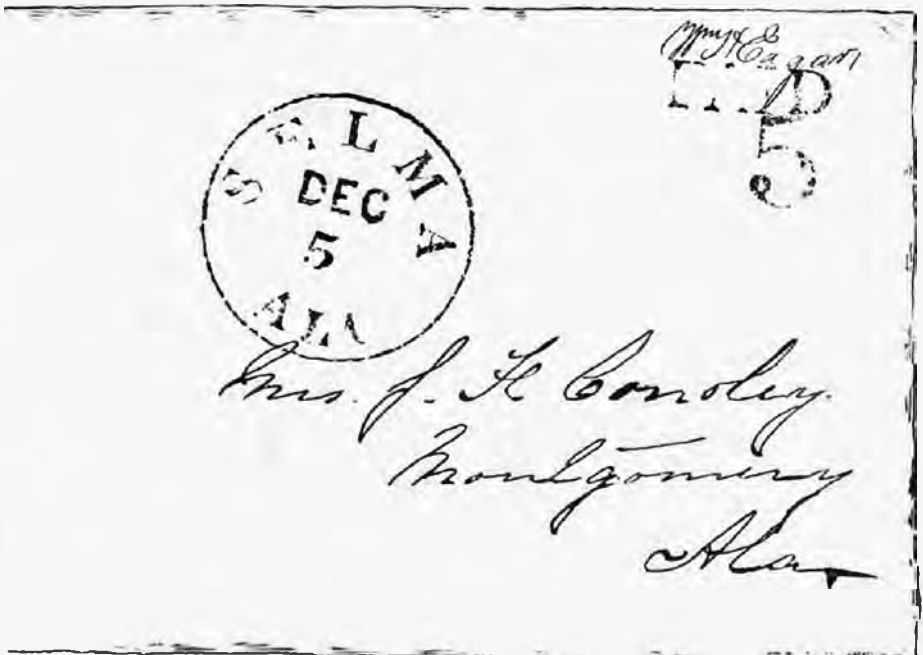 Wm H Eagar
PAID
5
SELMA
DEC
5
ALA
Mrs. J. H Conoley.
Montgomery
Ala.